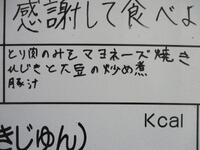 感謝して食べよ
とり肉のみそマヨネーズ焼き
ひじきと大豆の炒め煮
豚汁
Kcal
きじゅん)